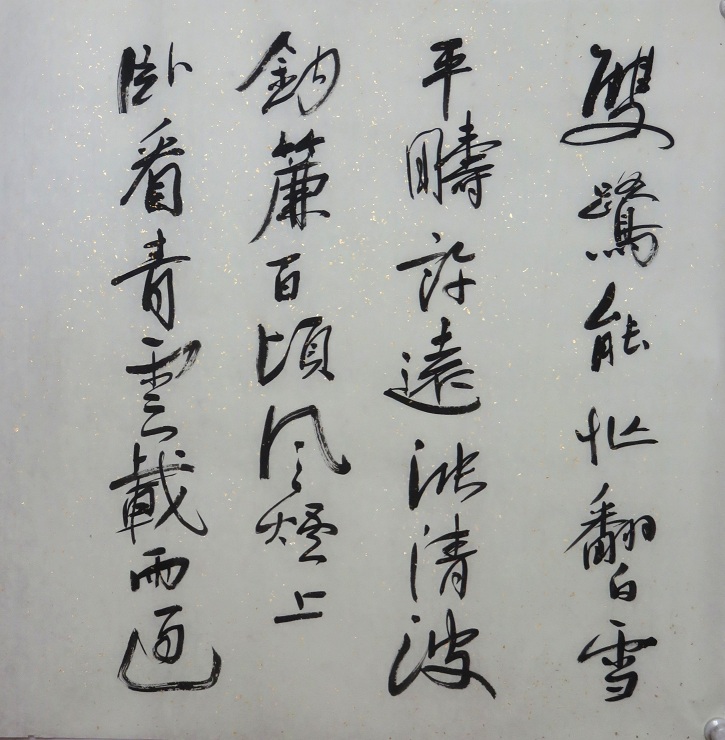 雙鷺能忙翻白雪
平疇許遠漲清波
鈎簾百頃風煙上
卧看青雲載雨過